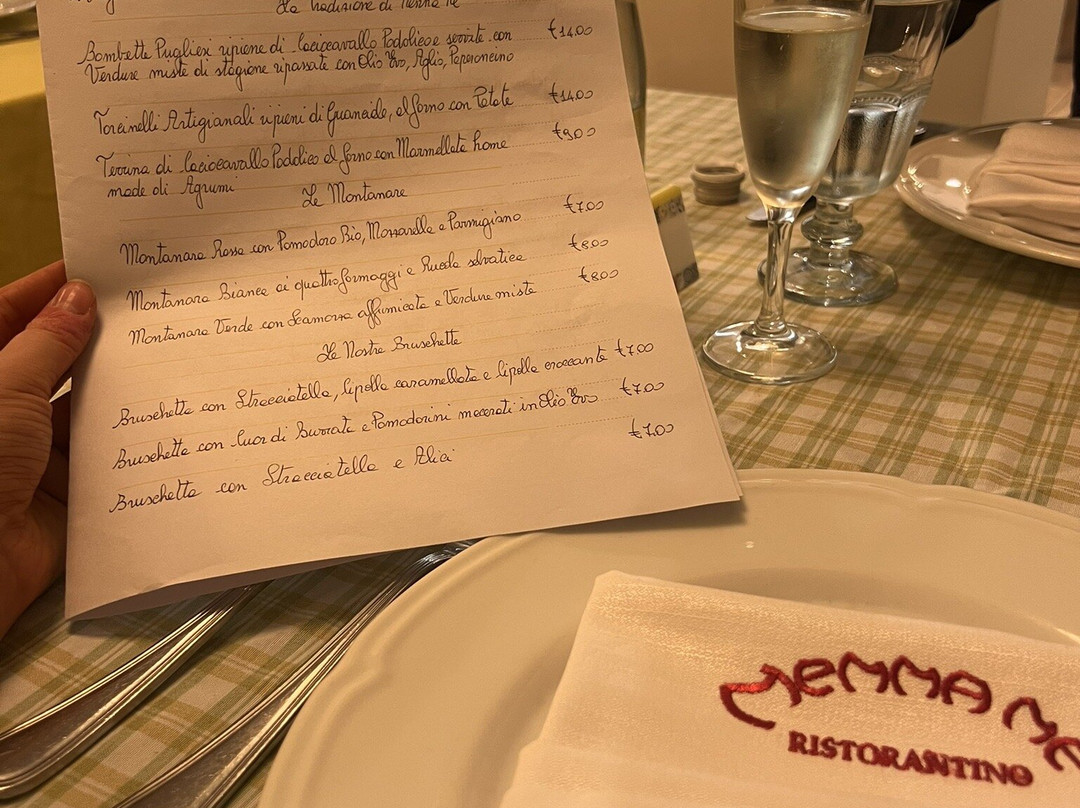 La Tradizione di
Bombette Pugliesi ripiene di Caciocavallo Podolico e servite con €14.00
Verdure miste di stagione ripassate con Olio Evo, Aglio, Peperoncino
Torcinelli Artigianali ripieni di Guanciale, al forno con Patate €14.00
Terrina di Caciocavallo Podolico al forno con Marmellata home €9.00
made di Agrumi
Le Montanare
Montanara Rossa con Pomodoro Bio, Mozzarella e Parmigiano €7.00
Montanara Bianca ai quattro formaggi e Rucola selvatica €8.00
Montanara Verde con Scamorza affumicata e Verdure miste €8.00
Le Nostre Bruschette
Bruschetta con Stracciatella, Cipolla caramellata e Cipolla croccante €7.00
Bruschetta con Cuor di Burrata e Pomodorini macerati in Olio Evo €7.00
Bruschetta con Stracciatella e Alici €7.00
GEMMA
RISTORANTINO